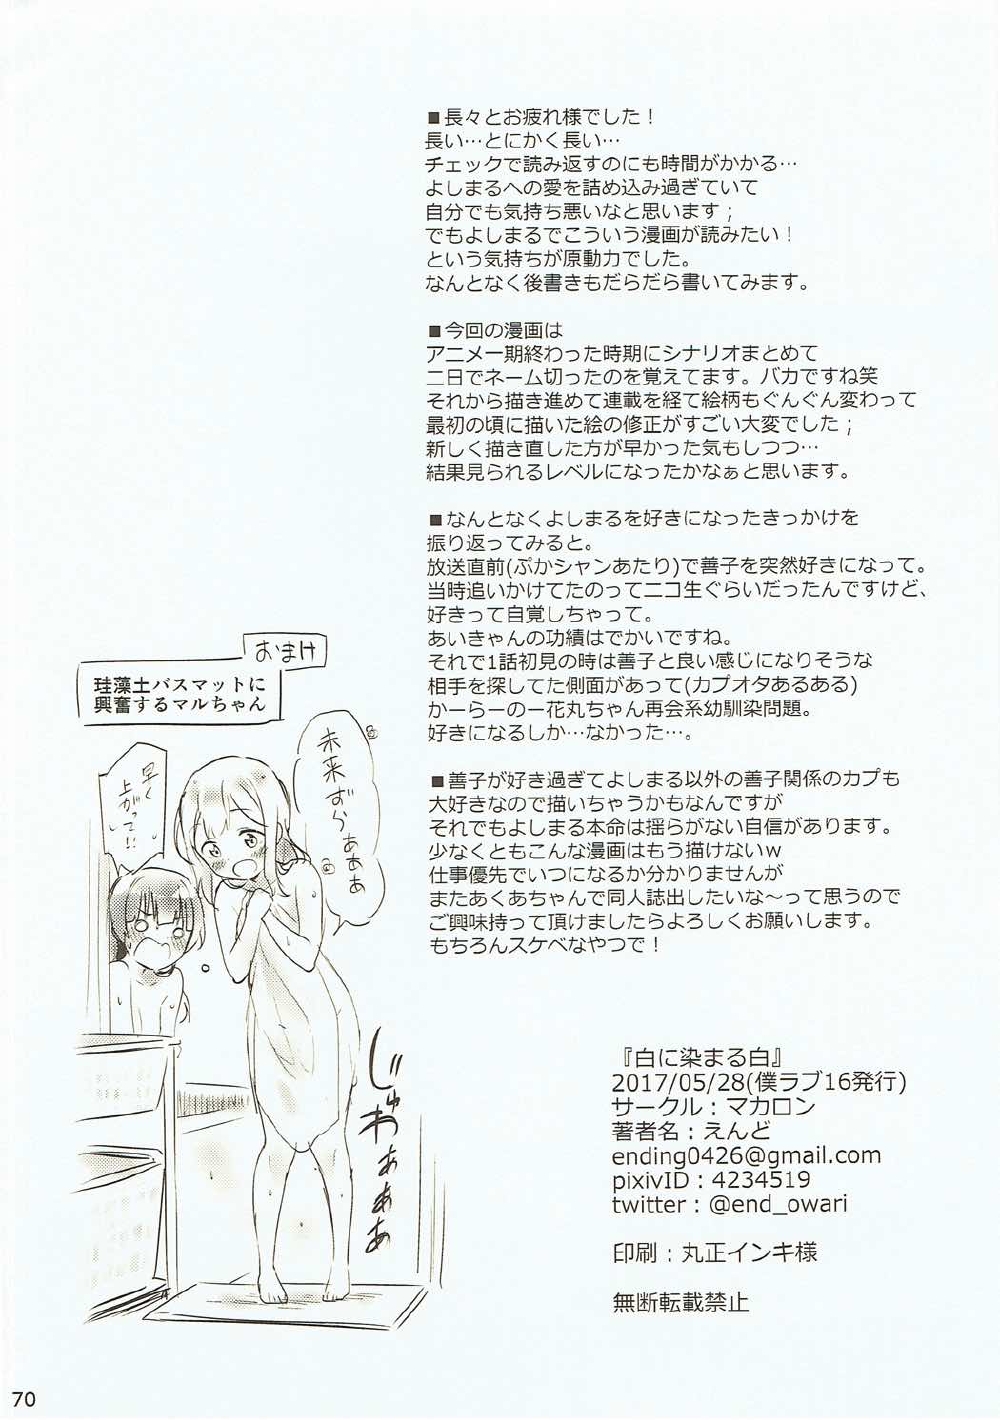 ■長々とお疲れ様でした！
長い…とにかく長い…
チェックで読み返すのにも時間がかかる…
よしまるへの愛を詰め込み過ぎていて
自分でも気持ち悪いなと思います；
でもよしまるでこういう漫画が読みたい！
という気持ちが原動力でした。
なんとなく後書きもだらだら書いてみます。
■今回の漫画は
アニメ一期終わった時期にシナリオまとめて
二日でネーム切ったのを覚えてます。バカですね笑
それから描き進めて連載を経て絵柄もぐんぐん変わって
最初の頃に描いた絵の修正がすごい大変でした；
新しく描き直した方が早かった気もしつつ…
結果見られるレベルになったかなぁと思います。
■なんとなくよしまるを好きになったきっかけを
振り返ってみると。
放送直前(ぷかシャンあたり)で善子を突然好きになって。
当時追いかけてたのってニコ生ぐらいだったんですけど、
好きって自覚しちゃって。
あいきゃんの功績はでかいですね。
それで1話初見の時は善子と良い感じになりそうな
相手を探してた側面があって(カプオタあるある)
かーらーのー花丸ちゃん再会系幼馴染問題。
好きになるしか…なかった…。
■善子が好き過ぎてよしまる以外の善子関係のカプも
大好きなので描いちゃうかもなんですが
それでもよしまる本命は揺らがない自信があります。
少なくともこんな漫画はもう描けないw
仕事優先でいつになるか分かりませんが
またあくあちゃんで同人誌出したいな～って思うので
ご興味持って頂けましたらよろしくお願いします。
もちろんスケベなやつで！
おまけ
珪藻土バスマットに
興奮するマルちゃん
未来ずらぁぁぁ
早く
上がって!!
じゅわぁぁぁ
『白に染まる白』
2017/05/28(僕ラブ16発行)
サークル：マカロン
著者名：えんど
ending0426@gmail.com
pixivID：4234519
twitter：@end_owari
印刷：丸正インキ様
無断転載禁止
70